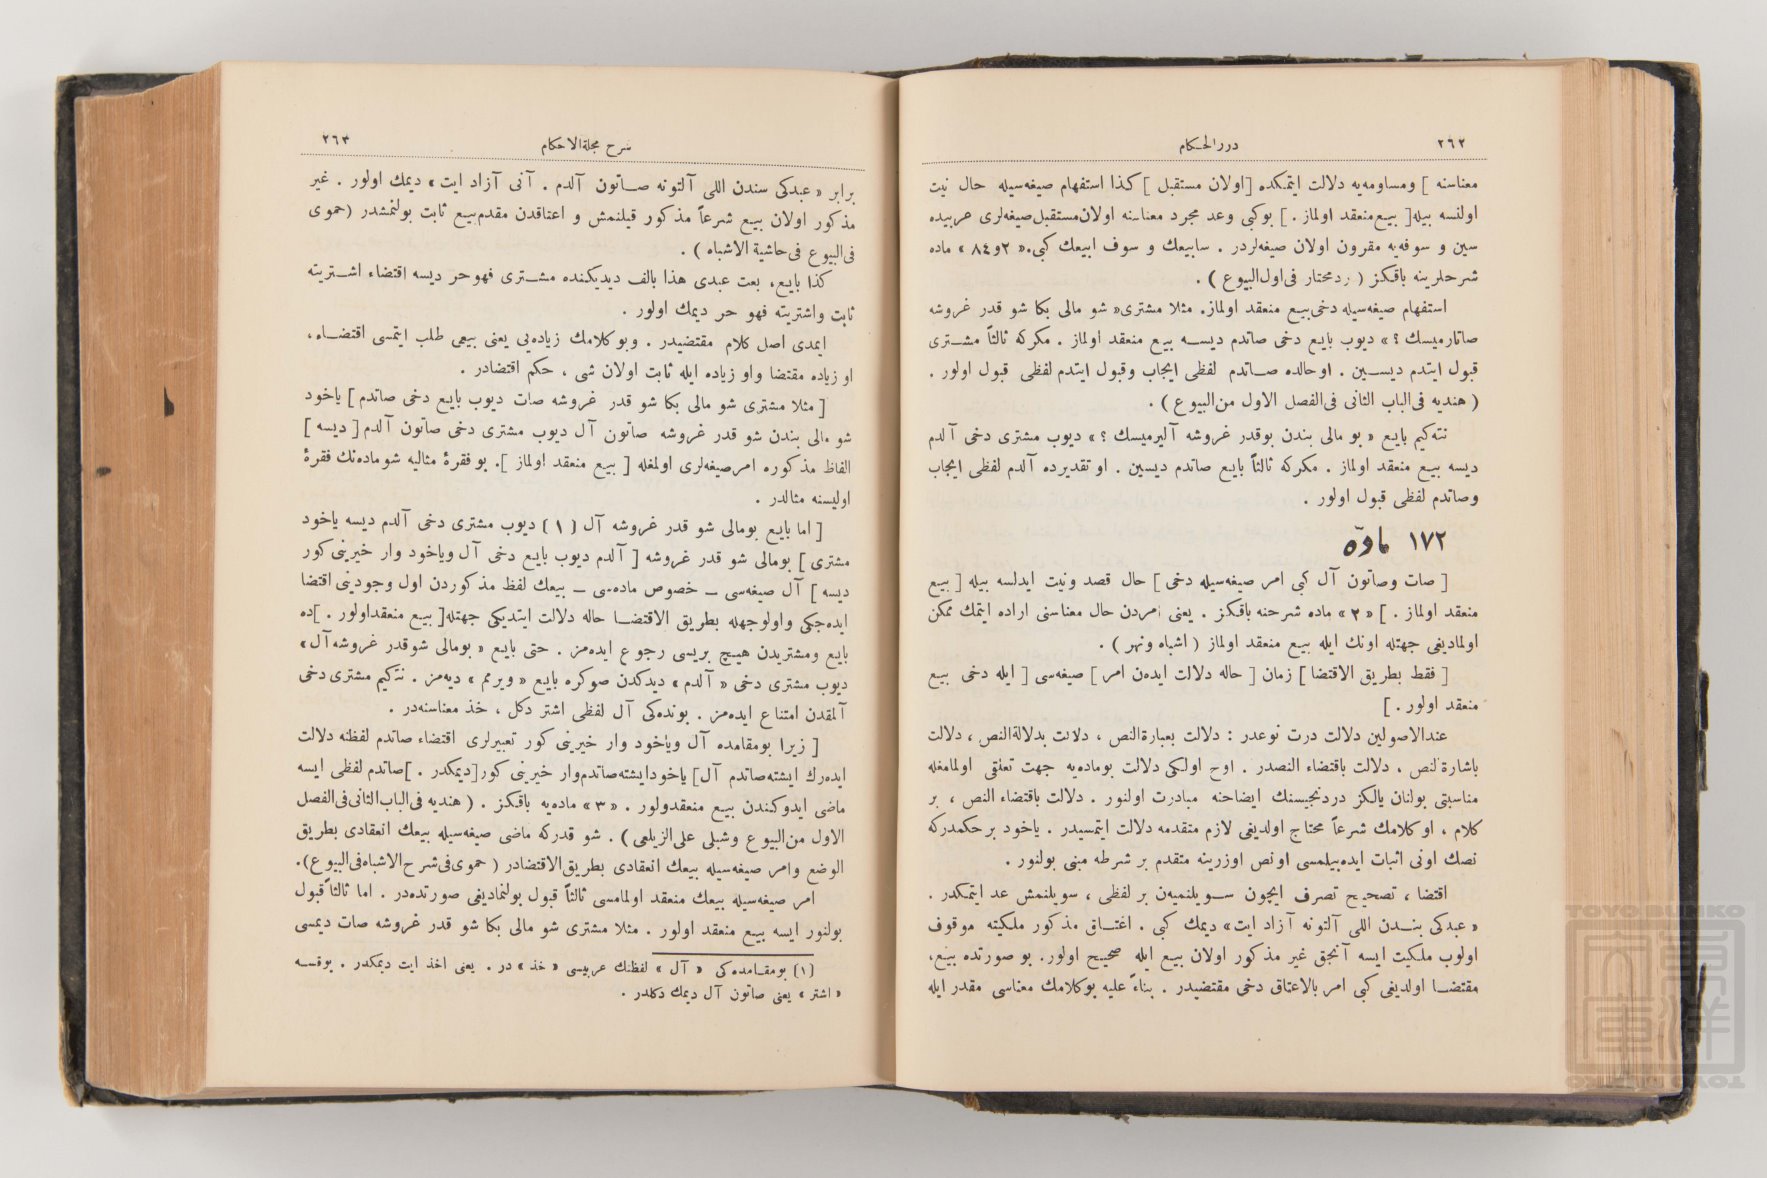 ٢٦٢
دررالحكام
معناسنه ] ومساومه‌يه دلالت ايتمكده [اولان مستقبل ] كذا استفهام صيغه‌سيله حال نيت
اولنسه بيله[ بيع منعقد اولماز . ] بوكبى وعد مجرد معناسنه اولان‌مستقبل‌صيغه‌لرى عربيده
سين و سوفه‌يه مقرون اولان صيغه‌لردر . سابيعك و سوف ابيعك كبى.« ٢و٨٤ » ماده
شرحلرينه باقكز ( ردمختار فى‌اول‌البيوع ) .
استفهام صيغه‌سيله دخى‌بيع منعقد اولماز. مثلا مشترى« شو مالى بكا شو قدر غروشه
صاتارميسك ؟ » ديوب بايع دخى صاتدم ديسه بيع منعقد اولماز . مكركه ثالثاً مشترى
قبول ايتدم ديسين . اوحالده صاتدم لفظى ايجاب وقبول ايتدم لفظى قبول اولور .
( هنديه فى‌الباب الثانى فى‌الفصل الاول من‌البيوع ) .
نته‌كيم بايع « بو مالى بندن بوقدر غروشه آليرميسك ؟ » ديوب مشترى دخى آلدم
ديسه بيع منعقد اولماز . مكركه ثالثاً بايع صاتدم ديسين . او تقديرده آلدم لفظى ايجاب
وصاتدم لفظى قبول اولور .
١٧٢ مادّه
[ صات وصاتون آل كبى امر صيغه‌سيله دخى ] حال قصد ونيت ايدلسه بيله [ بيع
منعقد اولماز . ] « ٣ » ماده شرحنه باقكز . يعنى امردن حال معناسنى اراده ايتمك ممكن
اولماديغى جهتله اونك ايله بيع منعقد اولماز ( اشباه ونهر ) .
[ فقط بطريق الاقتضا ] زمان [ حاله دلالت ايده‌ن امر ] صيغه‌سى [ ايله دخى بيع
منعقد اولور . ]
عندالاصولين دلالت درت نوعدر : دلالت بعبارة‌النص ، دلالت بدلالة‌النص ، دلالت
باشارة‌النص ، دلالت باقتضاء النصدر . اوج اولكى دلالت بوماده‌يه جهت تعلقى اولمامغله
مناسبتى بولنان يالكز دردنجيسنك ايضاحنه مبادرت اولنور . دلالت باقتضاء النص ، بر
كلام ، او كلامك شرعاً محتاج اولديغى لازم متقدمه دلالت ايتمسيدر . ياخود بر حكمدركه
نصك اونى اثبات ايده‌بيلمسى اونص اوزرينه متقدم بر شرطه مبنى بولنور .
اقتضا ، تصحيح تصرف ايچون سويلنميه‌ن بر لفظى ، سويلنمش عد ايتمكدر .
« عبدكى بندن اللى آلتونه آزاد ايت» ديمك كبى . اعتاق مذكور ملكيته موقوف
اولوب ملكيت ايسه آنجق غير مذكور اولان بيع ايله صحيح اولور. بو صورتده بيع،
مقتضا اولديغى كبى امر بالاعتاق دخى مقتضيدر . بناءً عليه بوكلامك معناسى مقدر ايله
شرح مجلةالاحكام
٢٦٣
برابر « عبدكى سندن اللى آلتونه صاتون آلدم . آنى آزاد ايت» ديمك اولور . غير
مذكور اولان بيع شرعاً مذكور قيلنمش و اعتاقدن مقدم‌بيع ثابت بولنمشدر (حموى
فى‌البيوع فى‌حاشية الاشباه ) .
كذا بايع، بعت عبدى هذا بالف ديديكنده مشترى فهوحر ديسه اقتضاء اشتريته
ثابت واشتريته فهو حر ديمك اولور .
ايمدى اصل كلام مقتضيدر . وبو كلامك زياده‌يى يعنى بيعى طلب ايتمسى اقتضاء،
او زياده مقتضا واو زياده ايله ثابت اولان شى ، حكم اقتضادر .
[ مثلا مشترى شو مالى بكا شو قدر غروشه صات ديوب بايع دخى صاتدم ] ياخود
شو مالى بندن شو قدر غروشه صاتون آل ديوب مشترى دخى صاتون آلدم [ ديسه ]
الفاظ مذكوره امرصيغه‌لرى اولمغله [ بيع منعقد اولماز ]. بو فقرهٔ مثاليه شوماده‌نك فقرهٔ
اوليسنه مثالدر .
[ اما بايع بومالى شو قدر غروشه آل (١) ديوب مشترى دخى آلدم ديسه ياخود
مشترى ] بومالى شو قدر غروشه [ آلدم ديوب بايع دخى آل وياخود وار خيرينى كور
ديسه ] آل صيغه‌سى — خصوص ماده‌سى — بيعك لفظ مذكوردن اول وجودينى اقتضا
ايده‌جكى واولوجهله بطريق الاقتضا حاله دلالت ايتديكى جهتله[ بيع منعقداولور . ]ده
بايع ومشتريدن هيچ بريسى رجوع ايده‌مز . حتى بايع « بومالى شوقدر غروشه آل»
ديوب مشترى دخى « آلدم » ديدكدن صوكره بايع « ويرمم » ديه‌مز . نته‌كيم مشترى دخى
آلمقدن امتناع ايده‌مز . بونده‌كى آل لفظى اشتر دكل ، خذ معناسنه‌در .
[ زيرا بومقامده آل وياخود وار خيرينى كور تعبيرلرى اقتضاء صاتدم لفظنه دلالت
ايده‌رك ايشته‌صاتدم آل] ياخودايشته‌صاتدم‌وار خيرينى كور[ديمكدر . ]صاتدم لفظى ايسه
ماضى ايدوكندن بيع منعقدولور . « ٣ » ماده‌يه باقكز . ( هنديه فى‌الباب‌الثانى‌فى‌الفصل
الاول من‌البيوع وشبلى على‌الزيلعى ) . شو قدركه ماضى صيغه‌سيله بيعك انعقادى بطريق
الوضع وامر صيغه‌سيله بيعك انعقادى بطريق‌الاقتضادر ( حموى‌فى‌شرح‌الاشباه‌فى‌البيوع).
امر صيغه‌سيله بيعك منعقد اولمامسى ثالثاً قبول بولنماديغى صورتده‌در . اما ثالثاً قبول
بولنور ايسه بيع منعقد اولور . مثلا مشترى شو مالى بكا شو قدر غروشه صات ديمسى
(١) بومقامده‌كى « آل » لفظنك عربيسى « خذ » در . يعنى اخذ ايت ديمكدر . يوقسه
« اشتر » يعنى صاتون آل ديمك دكلدر .
TOYO BUNKO
東洋文庫
TOYO BUNKO